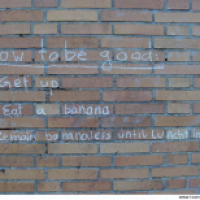 ow to be good:
Get up
Eat a banana
Remain bananaless until lunchtime